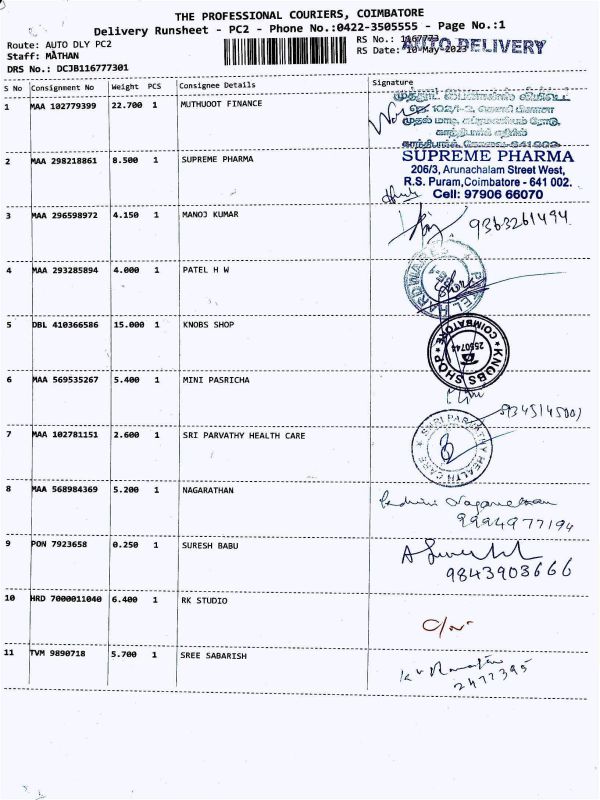 THE PROFESSIONAL COURIERS, COIMBATORE
Delivery Runsheet - PC2 - Phone No.:0422-3505555 - Page No.:1
Route: AUTO DLY PC2
RS No.: 1167773
Staff: MATHAN
RS Date: 10-May-2023
AUTO DELIVERY
DRS No.: DCJB116777301
S No Consignment No Weight PCS Consignee Details Signature
1 MAA 102779399 22.700 1 MUTHUOOT FINANCE
2 MAA 298218861 8.500 1 SUPREME PHARMA
SUPREME PHARMA
206/3, Arunachalam Street West,
R.S. Puram, Coimbatore - 641 002.
Cell: 97906 66070
3 MAA 296598972 4.150 1 MANOJ KUMAR
9363261494
4 MAA 293285894 4.000 1 PATEL H W
PATEL HARDWARES
5 DBL 410366586 15.000 1 KNOBS SHOP
KNOBS SHOP
COIMBATORE
2550744
6 MAA 569535267 5.400 1 MINI PASRICHA
7 MAA 102781151 2.600 1 SRI PARVATHY HEALTH CARE
SHRI PARVATHY HEALTH CARE
8 MAA 568984369 5.200 1 NAGARATHAN
9994977194
9 PON 7923658 0.250 1 SURESH BABU
9843903666
10 HRD 7000011040 6.400 1 RK STUDIO
11 TVM 9890718 5.700 1 SREE SABARISH
2472395